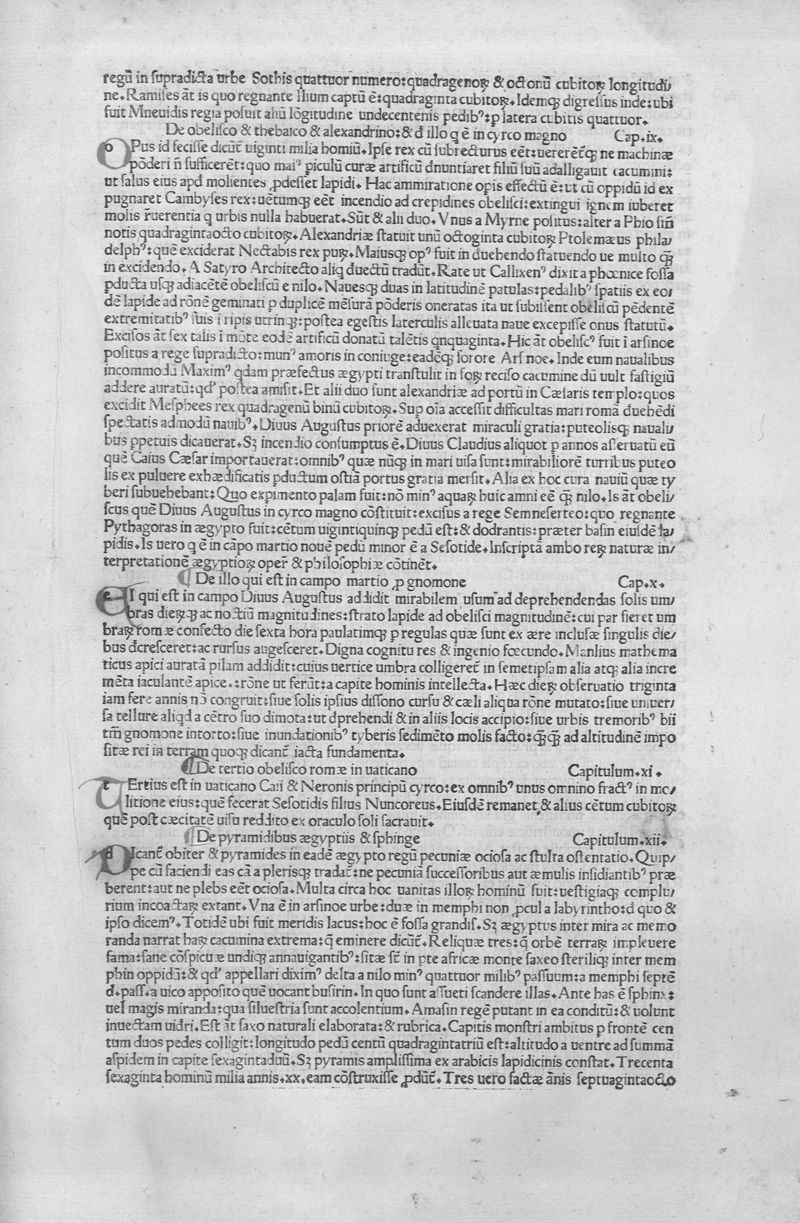 regū in supradicta urbe Sothis quattuor numero:quadragenoꝝ & octonū cubitoꝝ longitudi/
ne.Ramises āt is quo regnante ilium captū ē:quadraginta cubitoꝝ.Idemqꝫ digressus inde:ubi
fuit Mneuidis regia posuit aliū lōgitudine undecentenis pedibꝰ:ꝑ latera cubitis quattuor.
De obelisco & thebaico & alexandrino:& d̄ illo q ē in cyrco magno Cap.ix.
OPus id fecisse dicūt uiginti milia homiū.Ipse rex cū subrecturus eēt:uereretꝗꝫ ne machinæ
pōderi n̄ sufficerēt:quo maiꝰ piculū curæ artificū dnuntiaret filiū suū adalligauit cacumini:
ut salus eius apd molientes ꝓdesset lapidi.Hac ammiratione opis effectū ē:ut cū oppidū id ex
pugnaret Cambyses rex:uētumqꝫ eēt incendio ad crepidines obelisci:extingui ignem iuberet
molis r̄uerentia q urbis nulla habuerat.Sūt & alii duo.Vnus a Myrne positus:alter a Phio sin̄
notis quadragintaocto cubitoꝝ.Alexandriæ statuit unū octoginta cubitoꝝ Ptolemæus phila/
delphꝰ:quē exciderat Nectabis rex puꝝ.Maiusqꝫ opꝰ fuit in duehendo statuendo ue multo ꝗꝫ
in excidendo.A Satyro Architecto aliq duectū tradūt.Rate ut Callixenꝰ dixit a phœnice fossa
pducta usqꝫ adiacētē obeliscū e nilo.Nauesqꝫ duas in latitudinē patulas:pedalibꝰ spatiis ex eo/
dē lapide ad rōnē geminati p duplicē mēsurā pōderis oneratas ita ut subissent obeliscū pēdentē
extremitatibꝰ suis i ripis utrinqꝫ:postea egestis laterculis alleuata naue excepisse onus statutū.
Excisos āt sex talis i mōte eodē artificū donatū talētis qnquaginta.Hic āt obeliscꝰ fuit i arsinoe
positus a rege supradicto:munꝰ amoris in coniuge:eadēqꝫ sorore Arsinoe.Inde eum naualibus
incommodū Maximꝰ qdam præfectus ægypti transtulit in foꝝ reciso cacumine dū uult fastigiū
addere auratū:qdꝰ postea amisit.Et alii duo sunt alexandriæ ad portū in Cæsaris templo:quos
excidit Mesphees rex quadragenū binū cubitoꝝ.Sup oīa accessit difficultas mari romā duehēdi
spectatis admodū nauibꝰ.Diuus Augustus priorē aduexerat miraculi gratia:puteolisqꝫ nauali/
bus ppetuis dicauerat.Sꝫ incendio consumptus ē.Diuus Claudius aliquot p annos asseruatū eū
quē Caius Cæsar importauerat:omnibꝰ quæ nūqꝫ in mari uisa sunt:mirabiliorē turribus puteo
lis ex puluere exhædificatis pductum ostiā portus gratia mersit.Alia ex hoc cura nauiū quæ ty
beri subuehebant:Quo expimento palam fuit:nō minꝰ aquaꝝ huic amni eē ꝗꝫ nilo.Is āt obeli/
scus quē Diuus Augustus in cyrco magno cōstituit:excisus a rege Semneserteo:quo regnante
Pythagoras in ægypto fuit:cētum uigintiquinqꝫ pedū est:& dodrantis:præter basin eiusdē la/
pidis.Is uero q ē in cāpo martio nouē pedū minor ē a Sesotide.Inscriptā ambo reꝝ naturæ in/
terpretationē ægyptioꝝ oper̄ & philosophiæ cōtinēt.
De illo qui est in campo martio ꝓ gnomone Cap.x.
EI qui est in campo Diuus Augustus addidit mirabilem usum ad deprehendendas solis um/
bras dieꝝqꝫ ac noctiū magnitudines:strato lapide ad obelisci magnitudinē:cui par fieret um
braꝝ romæ confecto die sexta hora paulatimqꝫ p regulas quæ sunt ex ære inclusæ singulis die/
bus dcresceret:ac rursus augesceret.Digna cognitu res & ingenio fœcundo.Manlius mathema
ticus apici auratā pilam addidit:cuius uertice umbra colligeret in semetipsam alia atqꝫ alia incre
mēta iaculantē apice.:rōne ut ferūt:a capite hominis intellecta.Hæc dieꝝ obseruatio triginta
iam fere annis nō congruit:siue solis ipsius dissono cursu & cæli aliqua rōne mutato:siue uniuer/
sa tellure aliqd a cētro suo dimota:ut dprehendi & in aliis locis accipio:siue urbis tremoribꝰ bii
tm̄ gnomone intorto:siue inundationibꝰ tyberis sedimēto molis facto:ꝗꝫꝗꝫ ad altitudinē impo
sitæ rei in terram quoqꝫ dicant iacta fundamenta.
De tertio obelisco romæ in uaticano Capitulum.xi.
TErtius est in uaticano Caii & Neronis principū cyrco:ex omnibꝰ unus omnino fractꝰ in mo/
litione eius:quē fecerat Sesotidis filius Nuncoreus.Eiusdē remanet,& alius cētum cubitoꝝ
quē post cæcitatē uisu reddito ex oraculo soli sacrauit.
De pyramidibus ægyptiis & sphinge Capitulum.xii.
DIcant obiter & pyramides in eadē ægypto regū pecuniæ ociosa ac stulta ostentatio.Quip/
pe cū faciendi eas cā a plerisqꝫ tradat:ne pecuniā successoribus aut æmulis insidiantibꝰ præ
berent:aut ne plebs eēt ociosa.Multa circa hoc uanitas illoꝝ hominū fuit:uestigiaqꝫ complu/
rium incoactaꝝ extant.Vna ē in arsinoe urbe:duæ in memphi non ꝓcul a labyrintho:d quo &
ipso dicemꝰ.Totidē ubi fuit meridis lacus:hoc ē fossa grandis.Sꝫ ægyptus inter mira ac memo
randa narrat haꝝ cacumina extrema:q̄ eminere dicūt.Reliquæ tres:q̄ orbē terraꝝ impleuere
fama:sane cōspicuæ undiqꝫ annauigantibꝰ:sitæ st̄ in pte africæ monte saxeo steriliqꝫ inter mem
phin oppidū:& qdꝰ appellari diximꝰ delta a nilo minꝰ quattuor milibꝰ passuum:a memphi septē
d.pass.a uico apposito quē uocant busirin.In quo sunt assueti scandere illas.Ante has ē sphinx:
uel magis miranda:qua siluestria sunt accolentium.Amasin regē putant in ea conditū:& uolunt
inuectam uidri.Est āt saxo naturali elaborata:& rubrica.Capitis monstri ambitus p frontē cen
tum duos pedes colligit:longitudo pedū centū quadragintatriū est:altitudo a uentre ad summā
aspidem in capite sexagintaduū.Sꝫ pyramis amplissima ex arabicis lapidicinis constat.Trecenta
sexaginta hominū milia annis.xx.eam cōstruxisse ꝓdūt.Tres uero factæ ānis septuagintaocto